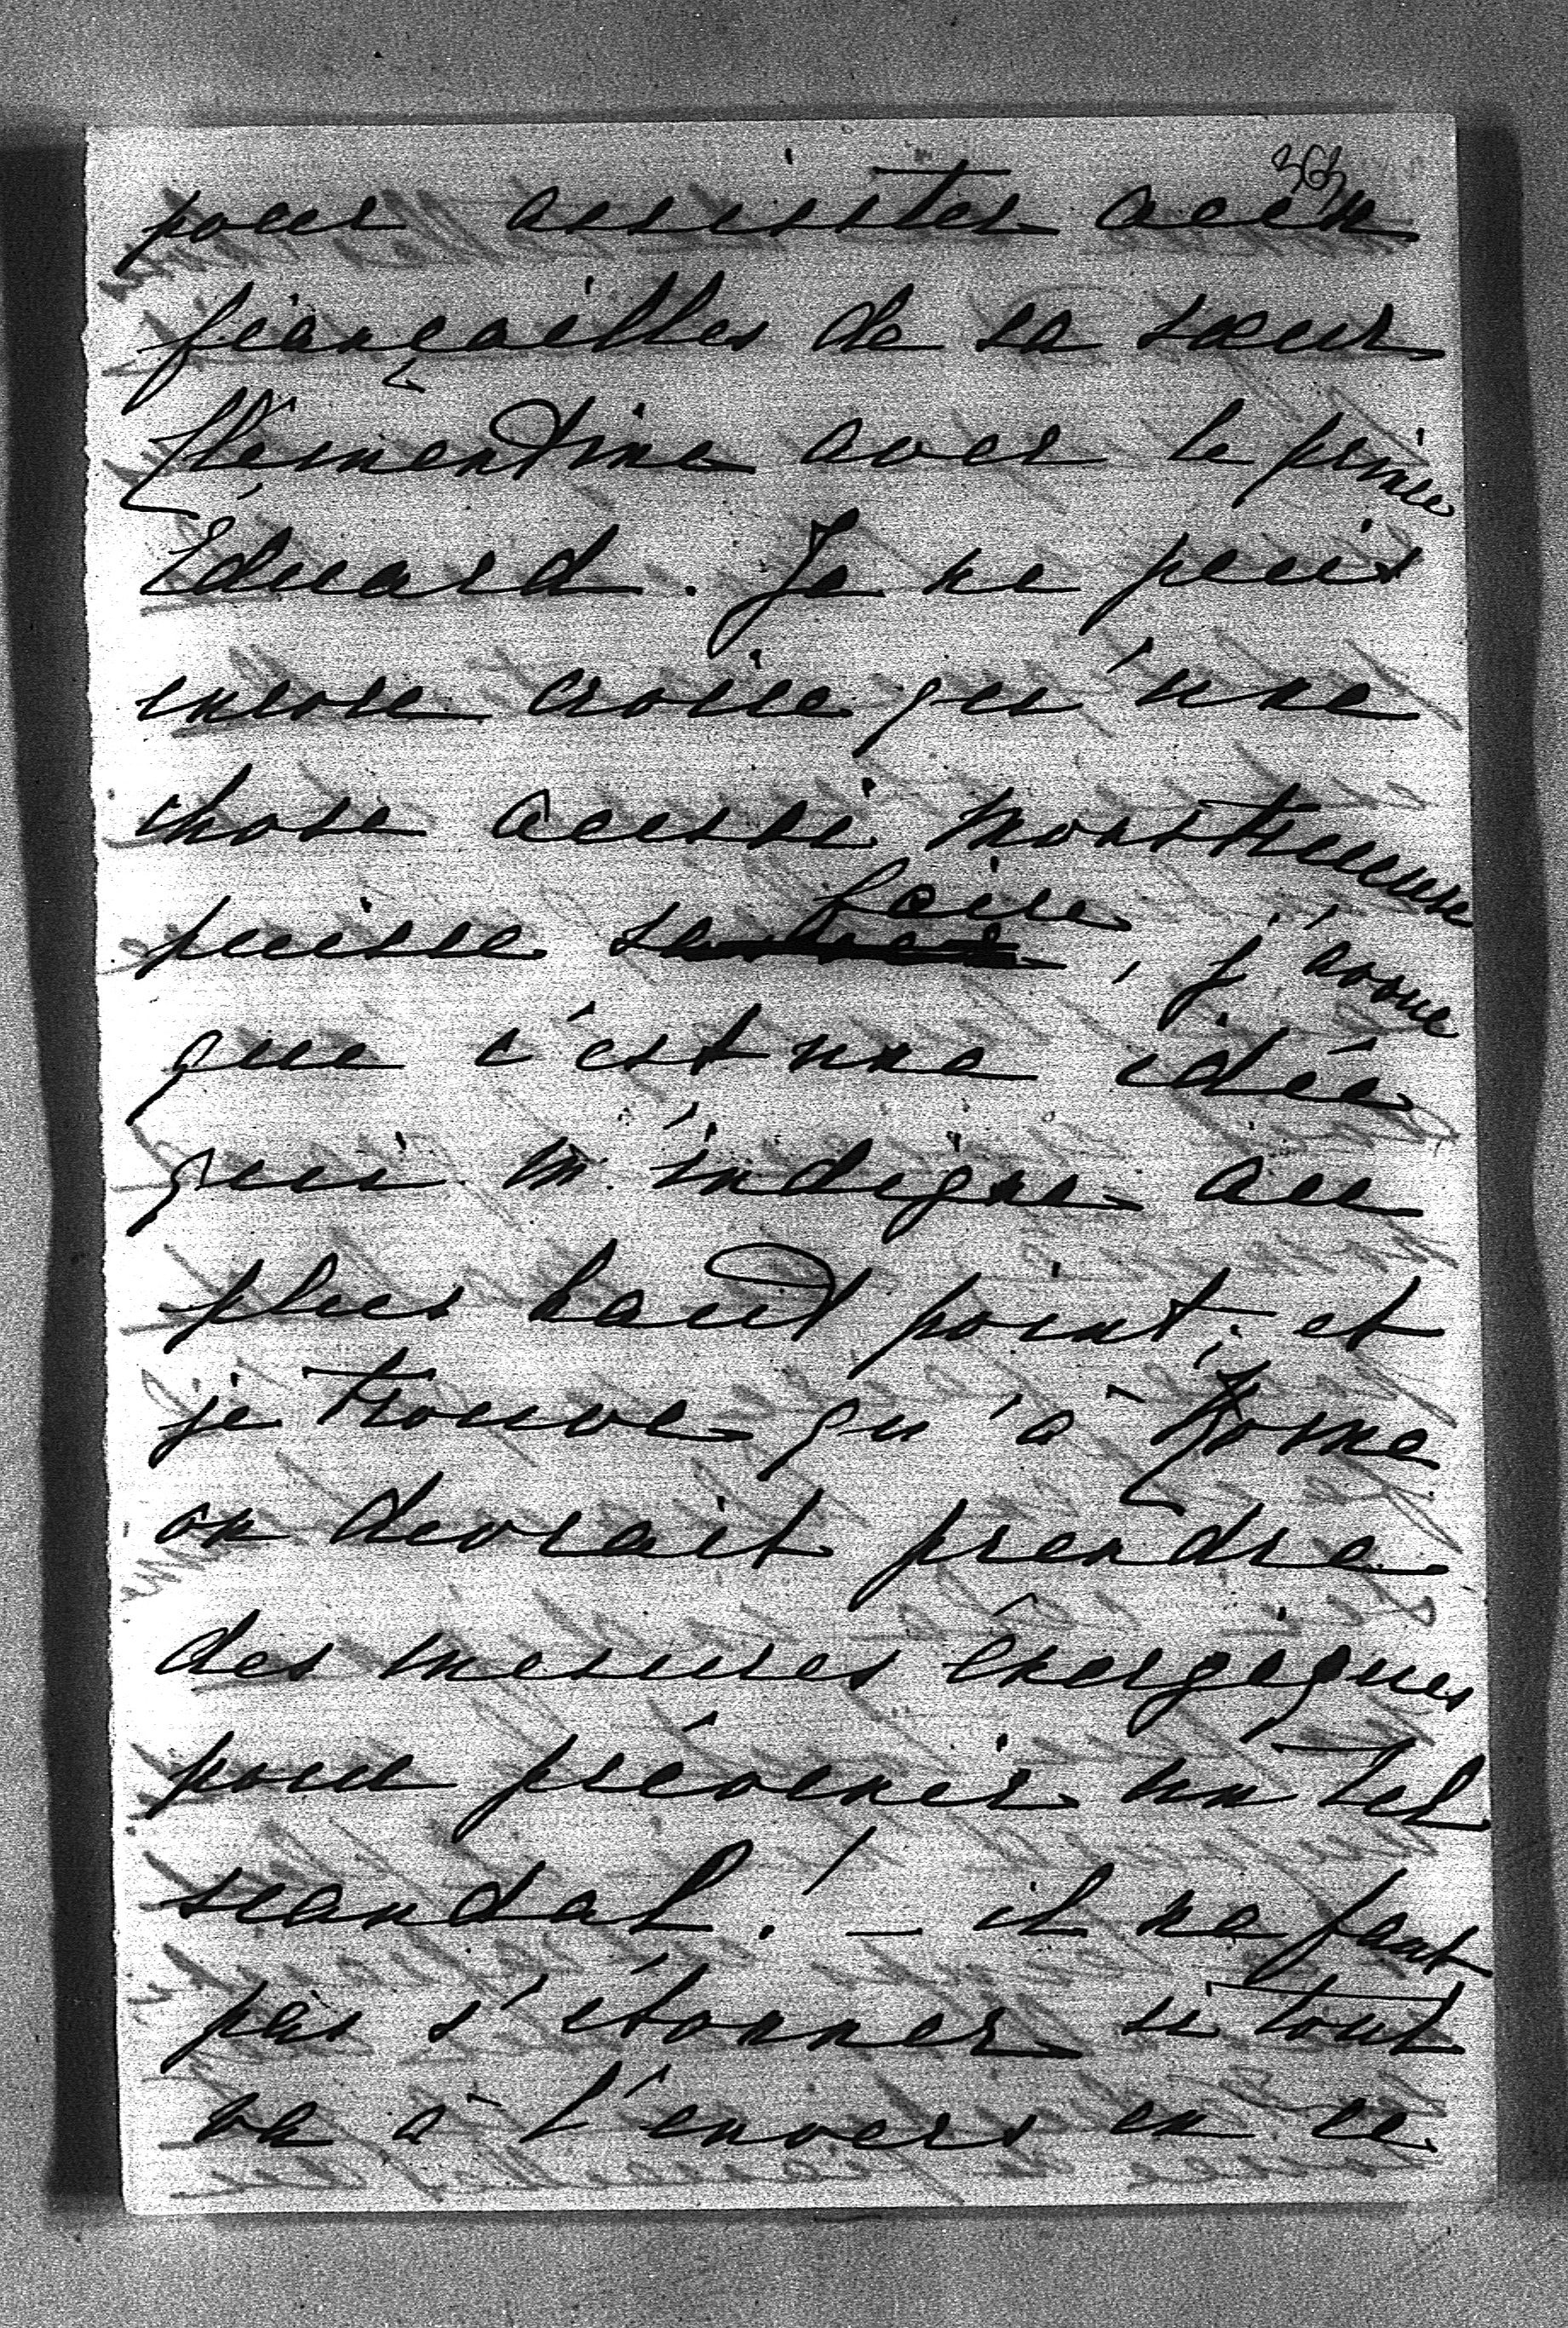 363
pour assister aux
fiançailles de sa sœur
Clémentine avec le prince
Eduard. Je ne puis
encore croire qu'une
chose aussi monstrueuse
puisse se faire, j'avoue
que c'est une idée
qui m'indigne au
plus haut point; et
je trouve qu'à Rome
on devrait prendre
des mesures énergiques
pour prévenir un tel
scandal! – il ne faut
pas s'étonner si tout
va à l'envers en ce